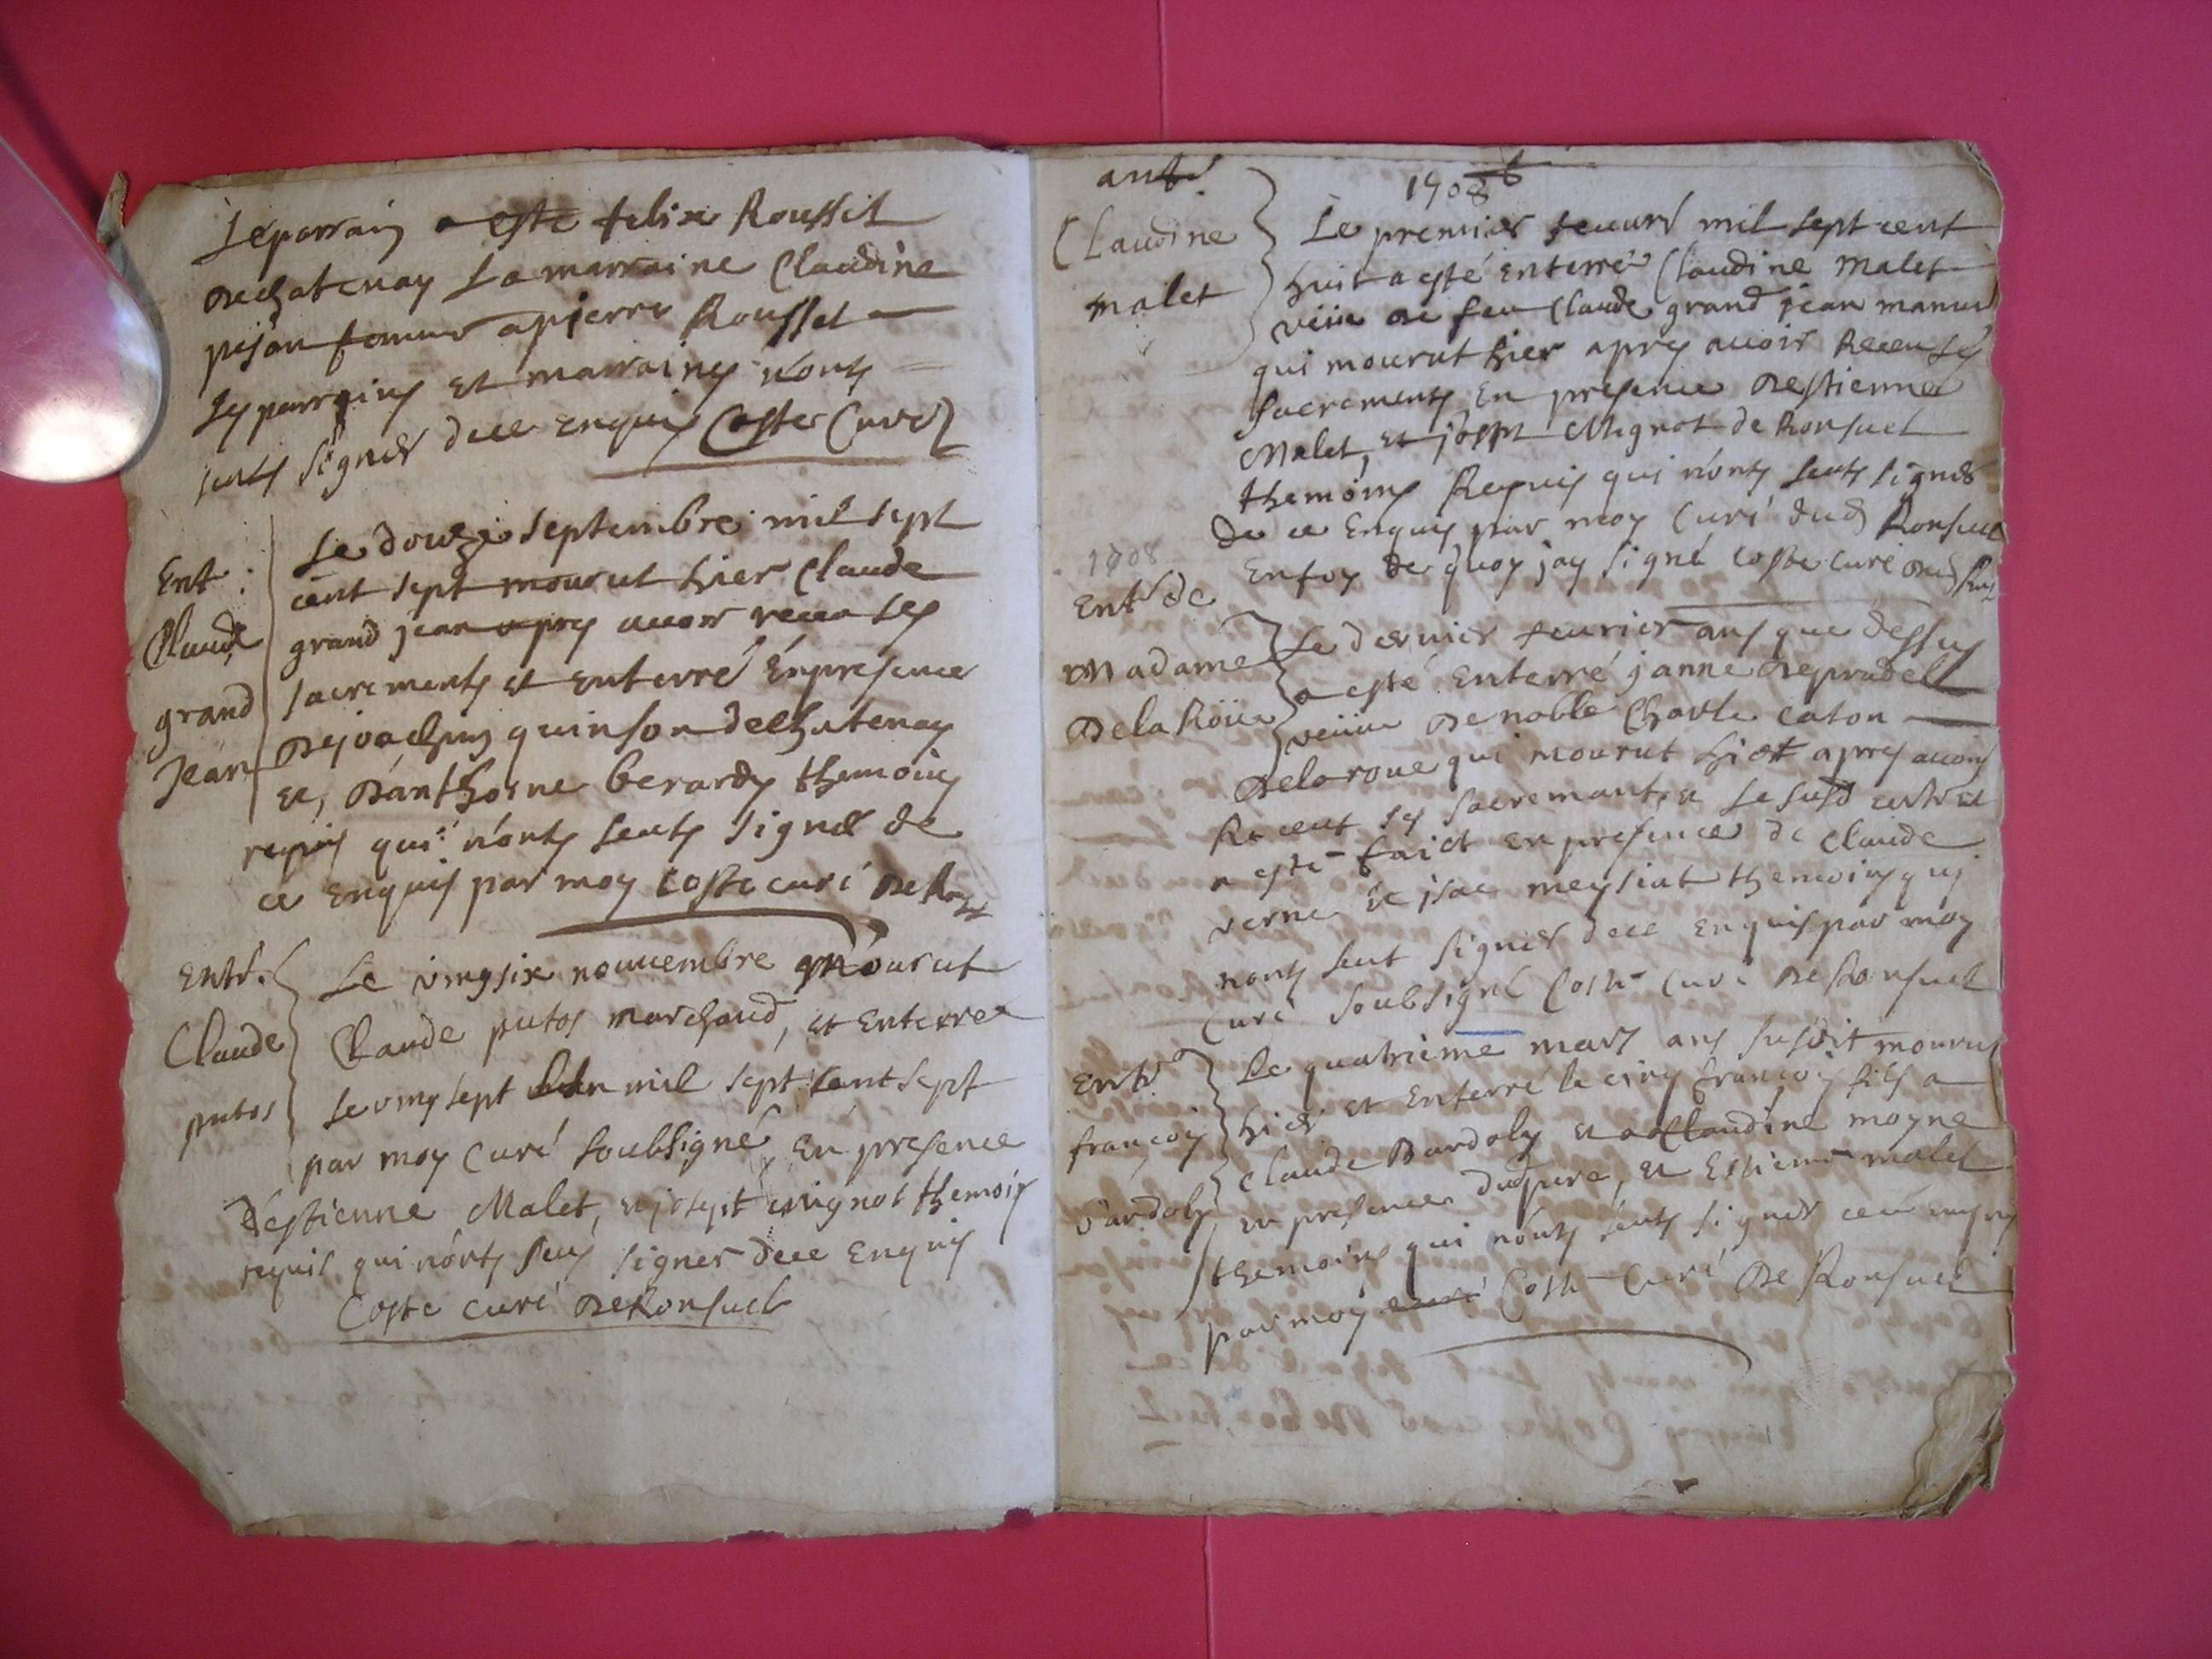 Le parrain a este felix Roussit
dechatenay La marraine Claudine
pejan femme apierre Rousset
Les parrains et marraines n'onts
seuts signer dece enquis Coste Curé
Ent :
Claude
grand
Jean
Le douze septembre mil sept
cent sept mourut hier Claude
grand jean apres auoir receu ses
sacrements et enterré en presence
de joachim quinson dechatenay
et, d'anthoine berardy themoins
requis qui n'onts seuts signer de
ce enquis par moy Coste curé de
Entr.
Claude
putos
Le vingsix nouuembre mourut
Claude putos marchand, et enterre
le vingsept mil sept cent sept
par moy Curé soubsigné, En presence
d'estienne Malet, et josept mignot themoins
requis qui n'onts seus signer dece Enquis
Coste curé de Ronsuel
1708
Claudine
malet
Le premier feuurier mil sept cent
huit a esté enterré Claudine malet
veüue de feu Claude grand jean
qui mourut hier apres auoir Receu ses
sacrements en presence d'estienne
Malet, et josept Mignot de Ronsuel
themoins Requis qui n'onts seuts signer
de ce Enquis par moy Curé dud Ronsuel
En foy de quoy jay signé Coste curé dud
1708
Entr de
Madame
De la Roüe
Le dernier feurier ans que dessus
a esté Enterré janne de pradell
veüue de noble Charle caton
de laroue qui mourut hier apres auoir
Receut ses sacremants, et le susd
a esté faict en presence de Claude
verne et jsac meysiat themoins qui
nonts seut signer dece enquis par moy
Curé soubsigné Coste Curé de Ronsuel
Entr
françois
Bardoly
Le quatrieme mars ans susdit mourut
hier et Enterré le cinq françois fils a
Claude Bardoly et a Claudine moyne
en presence dud pere, et Estienne malet
themoins qui n'onts seuts signer ce enquis
par moy Coste Curé de Ronsuel